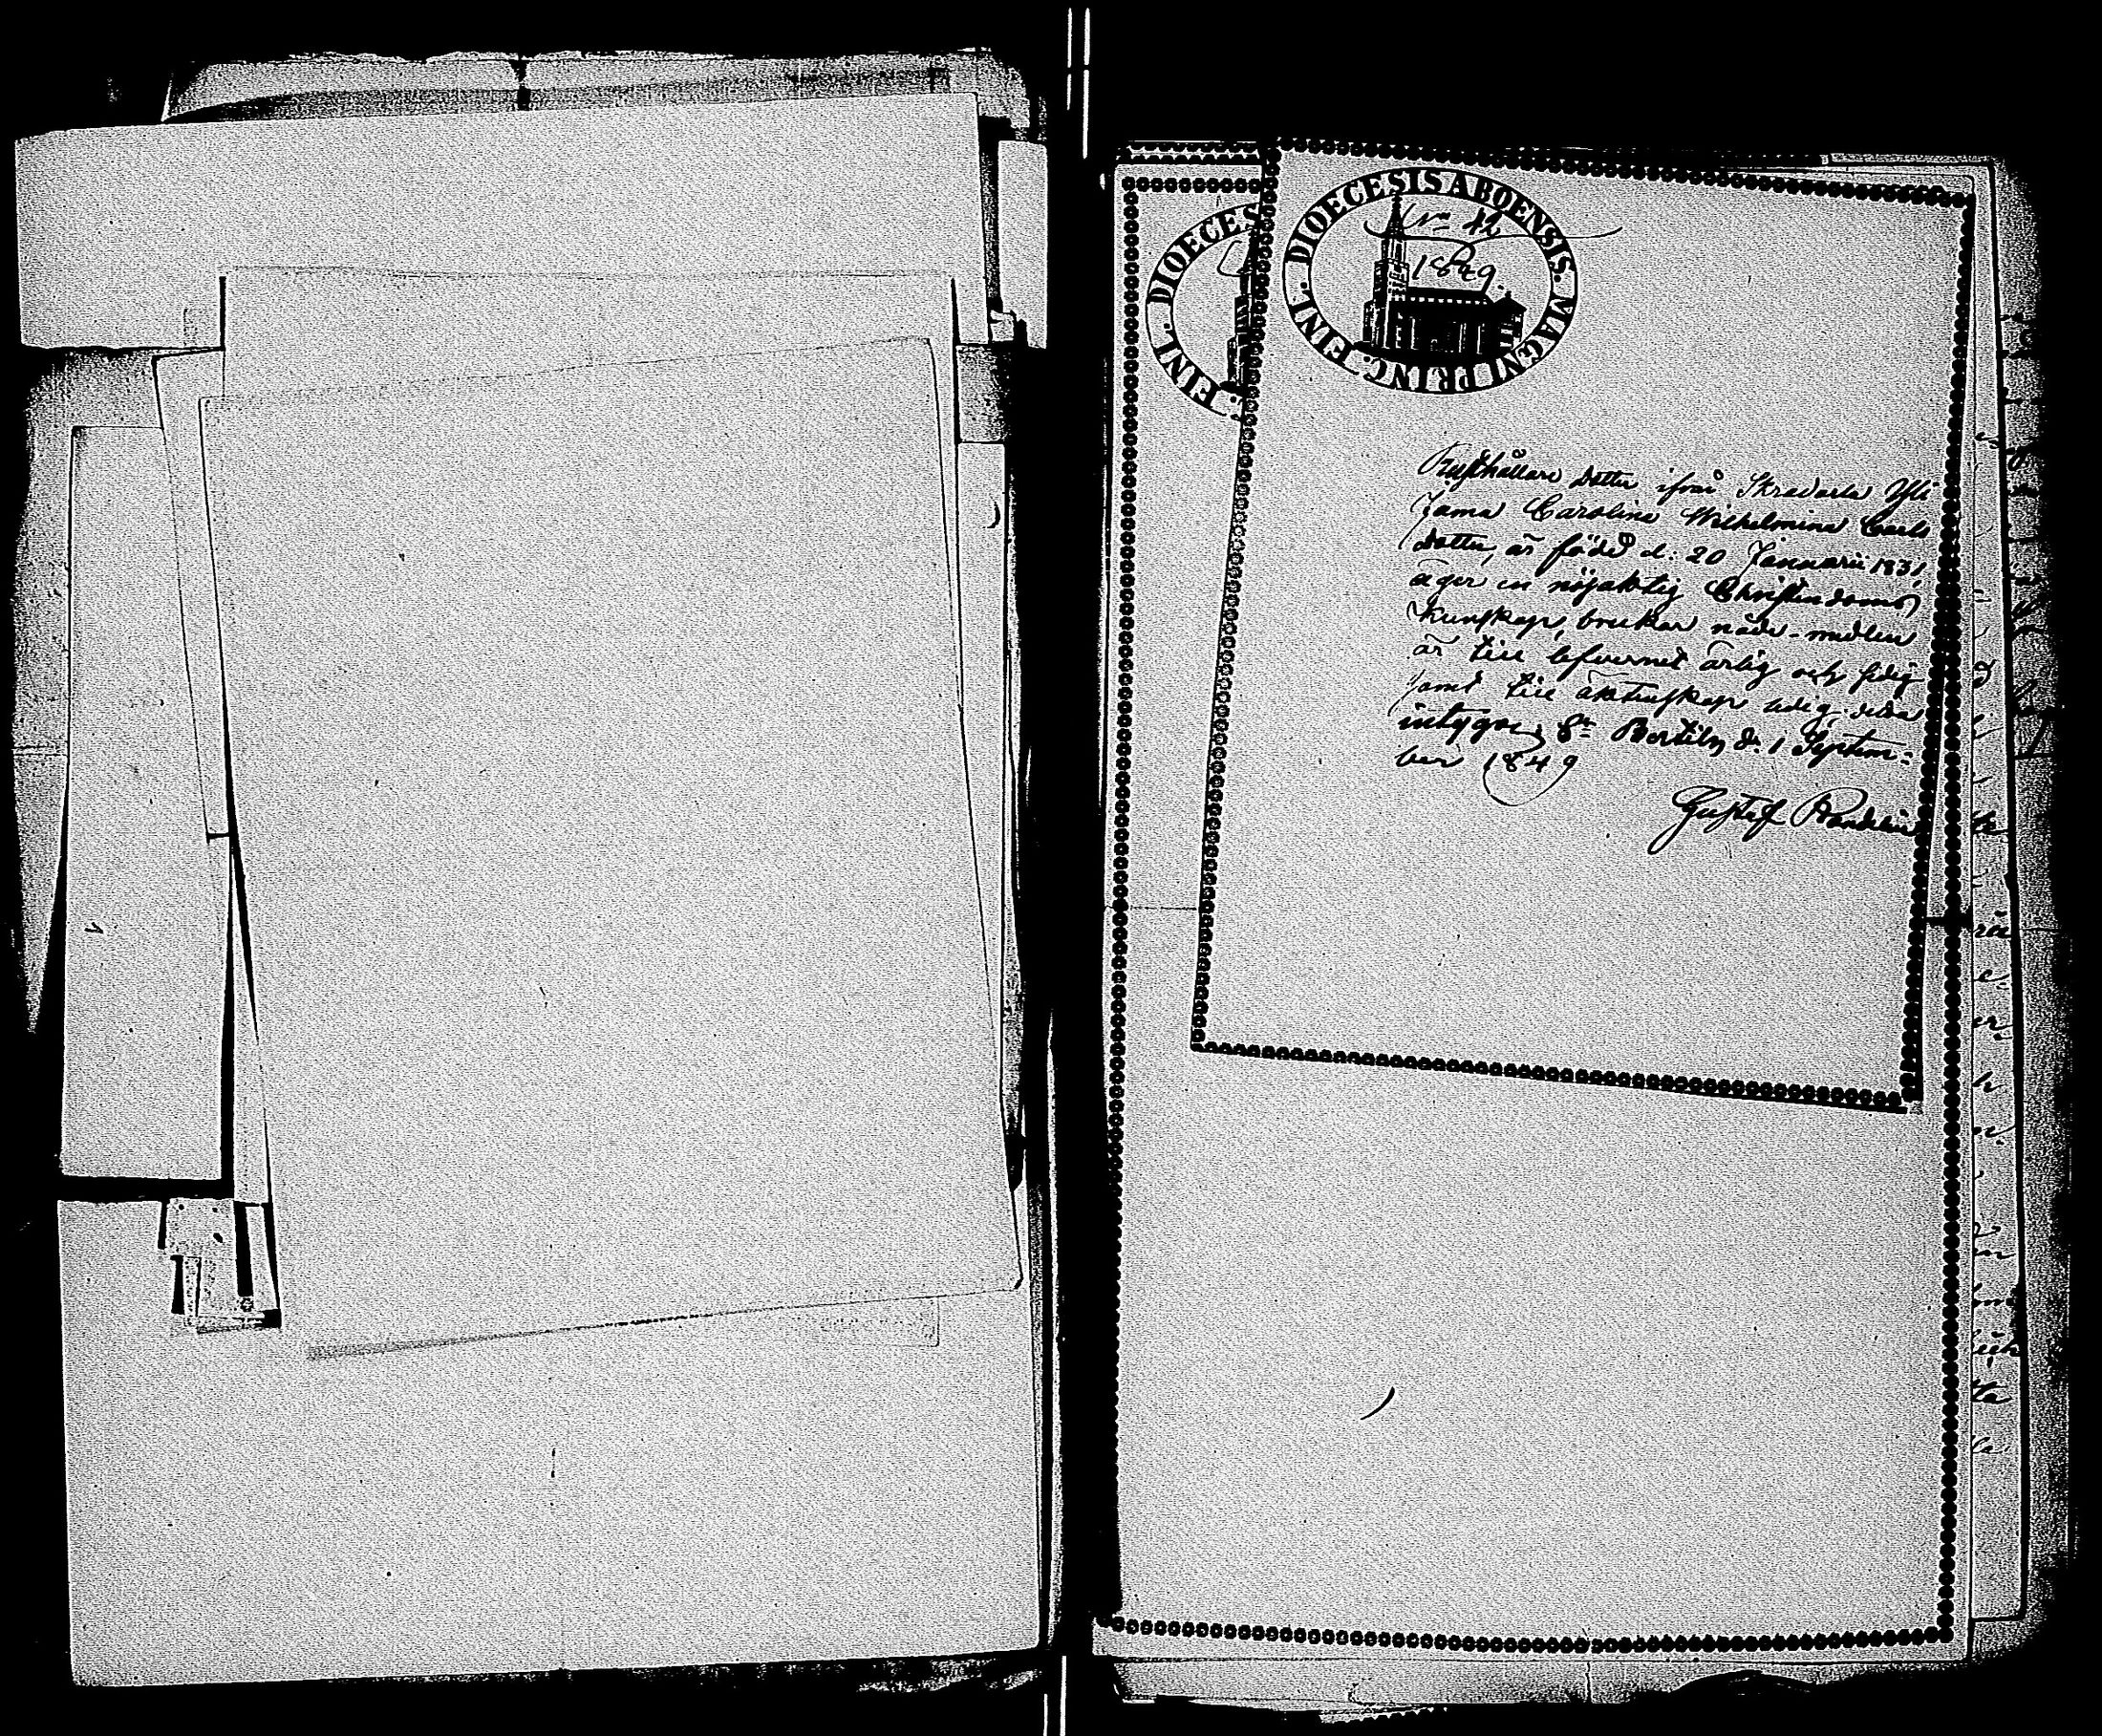 DIOECESIS ABOENSIS. MAGNI PRINC. FINL.
No 42
1849.
DIOECES
FINL.
Rusthållare dotter ifrån Skradarla Yli
Jama Carolina Wilhelmina Carls
dotter, är född d: 20 Januarii 1831,
äger en nöjaktig Christendoms
kunskap, brukar nåde-medlen
är till lefvernet ärlig och sedig
samt till äktenskap ledig; detta
intygas, St Bertils d. 1 Septem=
ber 1849
Gustaf Randelin